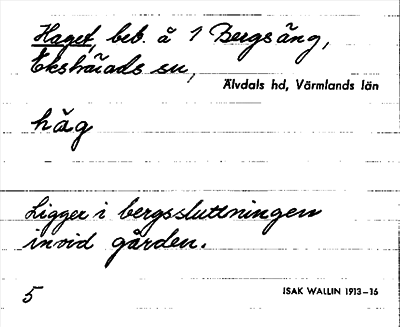 Haget, beb. å 1 Bergsäng,
Ekshärads sn,
Älvdals hd, Värmlands län
håg
Ligger i bergssluttningen
invid gården.
5
ISAK WALLIN 1913–16